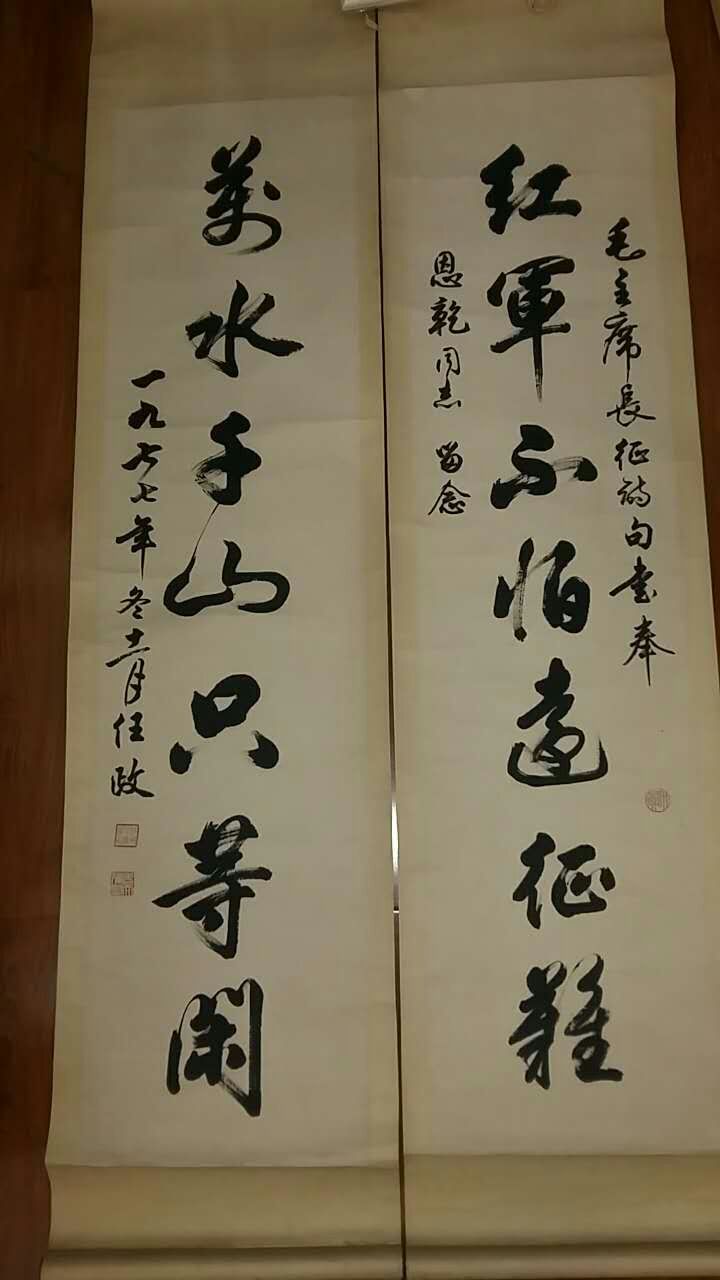 毛主席長征詩句書奉
紅軍不怕遠征難
恩乾同志 留念
萬水千山只等閑
一九七七年冬十一月任政